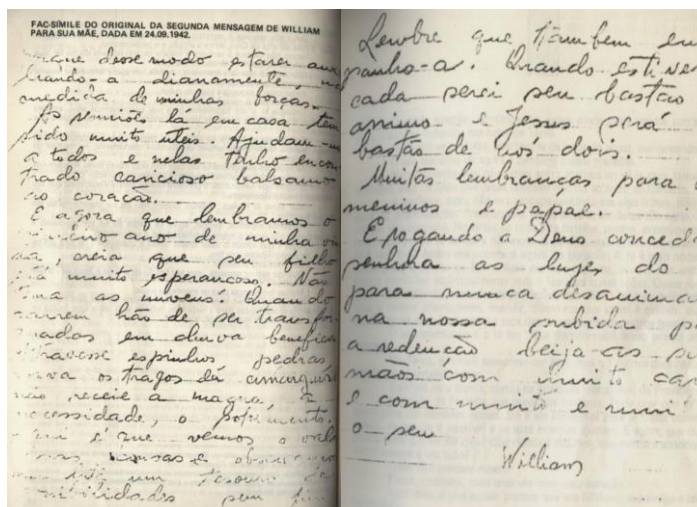 FAC-SÍMILE DO ORIGINAL DA SEGUNDA MENSAGEM DE WILLIAM
PARA SUA MÃE, DADA EM 24.09.1942.
desse modo estarei
a dianamente,
medida de minhas forças.
As reuniões lá em casa têm
sido muito uteis. Ajudam
a todos e nelas tenho encon
trado caricioso balsamo
ao coração.
E agora que lembramos o
ano de minha
creia que seu filho
muito esperançoso. Não
as nuvens. Quando
hão de ser transfor
madas em chuva benefica
espinhos pedras
os tragos de amargura
não receie a magua, a
necessidade, o sofrimento.
é que vemos o
e
um tesouro
sem
Lembre que tambem
panho-a. Quando estiver
cada serei seu bastão
animo e Jesus será
bastão de nós dois.
Muitas lembranças para
meninos e papae.
E rogando a Deus conced
senhora as luzes do
para nunca desanima
na nossa subida
a redenção beija-as
mãos com muito ca
e com muito e mui
o seu
William